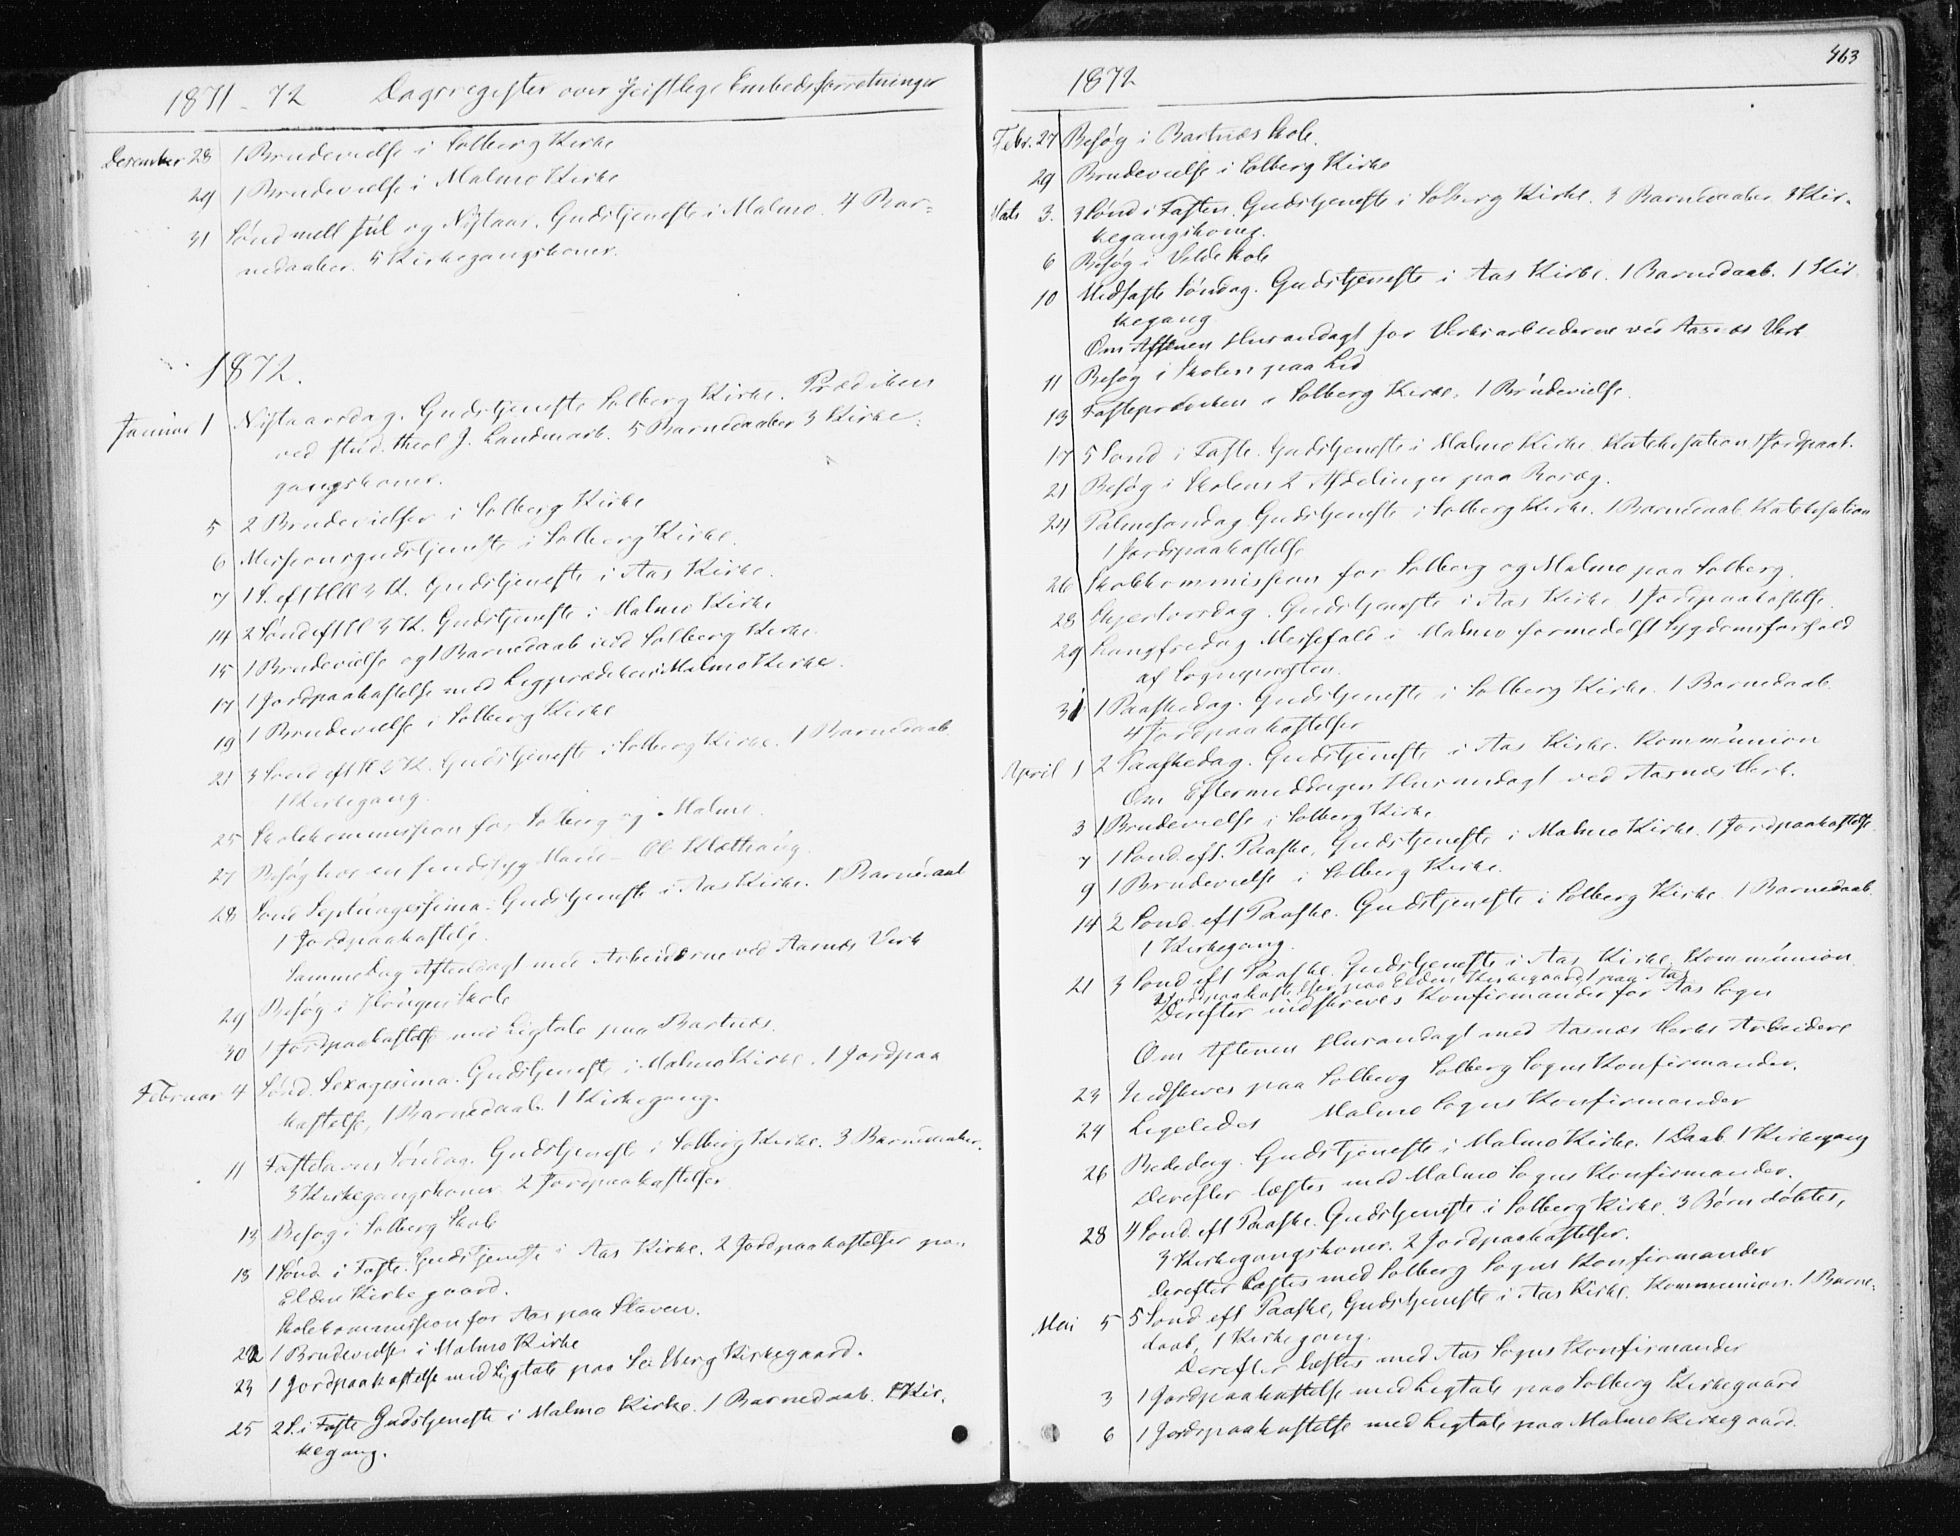 1871-72 Dagsregister over Geistlige Embedsforretninger
December 28 1 Brudevielse i Solberg Kirke
29 1 Brudevielse i Malmo Kirke
31 Sønd mell Jul og Nytaar. Gudstjeneste i Malmo. 4 Bar=
nedaaber. 5 Kirkegangskoner.
1872.
Januar 1 Nytaarsdag. Gudstjeneste Solberg Kirke. Prædiken
ved stud. theol J. Landmark. 5 Barnedaaber 3 Kirke=
gangskoner.
5 2 Brudevielser i Solberg Kirke
6 Missionsgudstjeneste i Solberg Kirke.
7 1 S. eft Hll 3 K. Gudstjeneste i Aas Kirke.
14 2 Sønd eft Hl 3 K. Gudstjeneste i Malmo Kirke
15 1 Brudevielse og 1 Barnedaab ved Solberg Kirke.
17 1 Jordpaakastelse med Ligprædiken i Malmo Kirke.
19 1 Brudevielse i Solberg Kirke
21 3 Sond eft H 3 K. Gudstjeneste i Solberg Kirke. 1 Barnedaab
1 Kirkegang.
25 Skolekommission for Solberg og Malmo.
27 Besøg hos en sindssyg Mand - Ol
28 Sond Septuagesima. Gudstjeneste i Aas Kirke. 1 Barnedaab
1 Jordpaakastelse.
Samme Dag Aftenandagt med Arbeiderne ved Aasnæs Verk
29 Besøg i Skole
30 1 Jordpaakastelse med Ligtale paa Bartnæs.
Februar 4 Sønd. Sexagesima. Gudstjeneste i Malmo Kirke. 1 Jordpaa
kastelse, 1 Barnedaab. 1 Kirkegang.
11 Fastelavns Søndag. Gudstjeneste i Solberg Kirke. 3 Barnedaaber.
3 Kirkegangskoner 2 Jordpaakastelser
13 Besøg i Solberg Skole
18 1 Sønd i Faste. Gudstjeneste i Aas Kirke. 2 Jordpaakastelser paa
Elden Kirkegaard.
Skolekommission for Aas paa Staven.
22 1 Brudevielse i Malmo Kirke
23 1 Jordpaakastelse med Ligtale paa Solberg Kirkegaard.
25 2 S. i Faste Gudstjeneste i Malmo Kirke. 1 Barnedaab. 1 Kir-
kegang.
463
1872
Febr. 27 Besøg i Bartnæs Skole.
29 Brudevielse i Solberg Kirke
Mats 3. 3 Sønd i Fasten. Gudstjeneste i Solberg Kirke. 3 Barnedaaber. 3 Kir-
kegangskoner.
6 Besøg i Velde Skole
10 Midfaste Søndag. Gudstjeneste i Aas Kirke. 1 Barnedaab. 1 Kir
kegang
Om Aftenen Husandagt for Verksarbeiderne ved Aasnæs Verk
11 Besøg i Skolen paa Lid
13 Fasteprædiken i Solberg Kirke. 1 Brudevielse.
17 5 Sond i Faste. Gudstjeneste i Malmo Kirke. Katekisation 1 Jordpaak.
21 Besøg i Skolens 2 Afdelinger paa
24 Palmesøndag Gudstjeneste i Solberg Kirke. 1 Barnedaab Katekisation
1 Jordpaakastelse
26 Skolekommission for Solberg og Malmo paa Solberg.
28 Skjertorsdag. Gudstjeneste i Aas Kirke 1 Jordpaakastelse.
29 Langfredag Messefald i Malmo formedelst Sygdomsforfald
af Sognepresten.
31 1 Paaskedag. Gudstjeneste i Solberg Kirke. 1 Barnedaab.
4 Jordpaakastelser
April 1 2 Paaskedag. Gudstjeneste i Aas Kirke. Kommunion
Om Eftermiddagen Husandagt ved Aasnæs Verk.
3 1 Brudevielse i Solberg Kirke
7 1 Sond. eft. Paaske, Gudstjeneste i Malmo Kirke. 1 Jordpaakastelse
9 1 Brudevielse i Solberg Kirke.
14 2 Sond. eft Paaske. Gudstjeneste i Solberg Kirke. 1 Barnedaab.
1 Kirkegang.
21 3 Sond eft Paaske. Gudstjeneste i Aas Kirke, Kommunion
2 Jordpaakastelser paa Elden Kirkegaard paa Aas
Derefter indskreves Konfirmander for Aas Sogn
Om Aftenen Husandagt med Aasnæs Verks Arbeidere
23 Indskreves paa Solberg Solberg Sogns Konfirmander.
24 Ligeledes Malmo Sogns Konfirmander
26 Bededag. Gudstjeneste i Malmo Kirke. 1 Daab. 1 Kirkegang
Derefter læstes med Malmo Sogns Konfirmander.
28 4 Sond. eft Paaske. Gudstjeneste i Solberg Kirke. 3 Børn døbtes,
3 Kirkegangskoner. 2 Jordpaakastelser.
Derefter læstes med Solberg Sogns Konfirmander
Mai 5 5 Sond eft Paaske, Gudstjeneste i Aas Kirke. Kommunion. 1 Barne-
daab, 1 Kirkegang.
Derefter læstes med Aas Sogns Konfirmander
3 1 Jordpaakastelse med Ligtale paa Solberg Kirkegaard
6 1 Jordspaakastelse med Ligtale paa Malmo Kirkegaard.